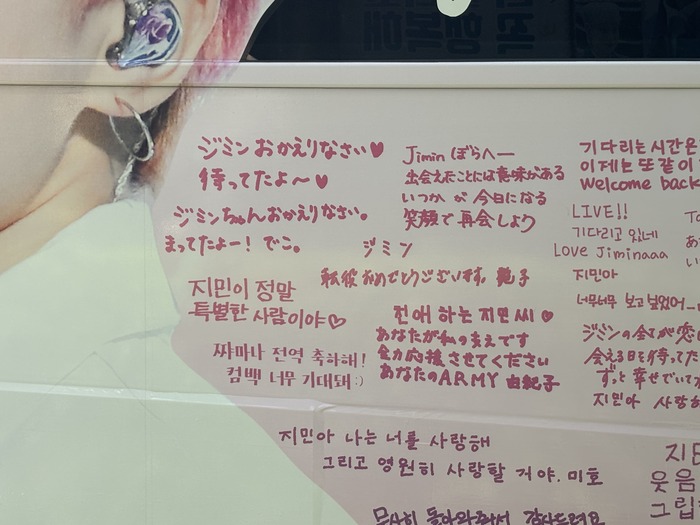 ジミン おかえりなさい♥
待ってたよ〜♥
ジミンちゃんおかえりなさい。
まってたよー! でこ。
ジミン
転役おめでとうございます。艶子
지민이 정말
특별한 사람이야♡
쨔마나 전역 축하해!
컴백 너무 기대돼:)
Jimin ぼらへー
出会えたことには意味がある
いつか が 今日になる
笑顔で再会しよう
친애 하는 지민씨♥
あなたが私の支えです
全力応援させてください
あなたのARMY 由紀子
지민아 나는 너를 사랑해
그리고 영원히 사랑할 거야. 미호
무사히 돌아와줘서 감사드려요
기다리는 시간은
이제는 또 같이
Welcome back
LIVE!!
기다리고 있네
LOVE Jiminaaa
지민아
너무너무 보고 싶었어
ジミンの全てが恋
会える日を待ってた
ずっと 幸せでいて
지민아 사랑
웃음
그립